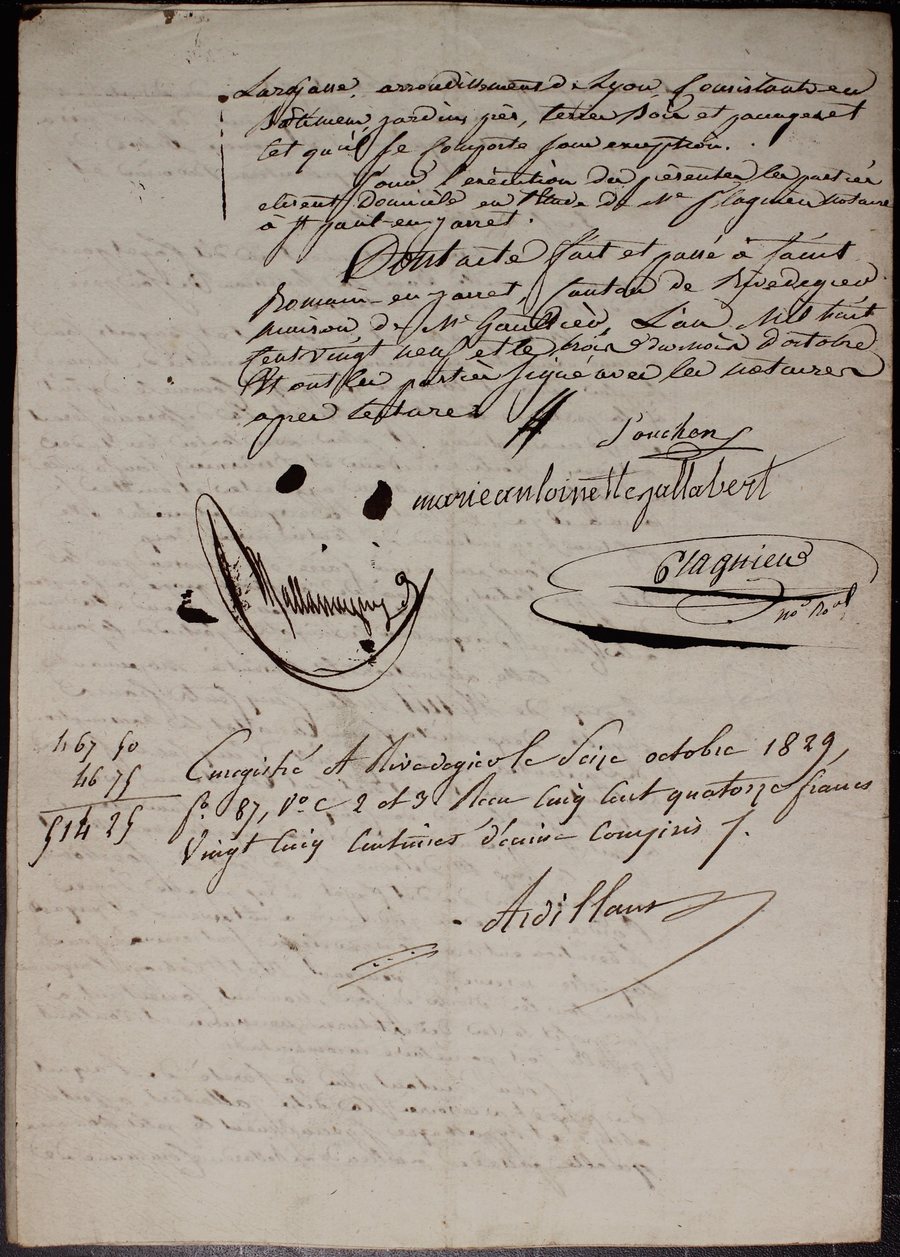 Larajasse, arrondissement de Lyon, Consistant en
Bâtimens jardins prés, terres bois et paturages et
tel qu'il se comporte sans exception.
Pour l'exécution des présentes les parties
elisent domicile en l'étude de Me Plagnieu notaire
à St paul-en-jarret.
Dont acte fait et passé à Saint
Romain-en-jarret, Canton de Rivedegier
maison de Mr L'an Mil huit
Cent vingt neuf et le trois du mois d'octobre
Et ont les parties signé avec les notaires
après lecture
Souchon
marieantoinette jallabert
Plagnieu
no.re Roal
467 50
46 75
514 25
Enregistré A Rivedegier le Seize octobre 1829,
fo. 87, Vo. c 2 et 3 Recu Cinq Cent quatorze francs
Vingt Cinq Centimes décime Compris